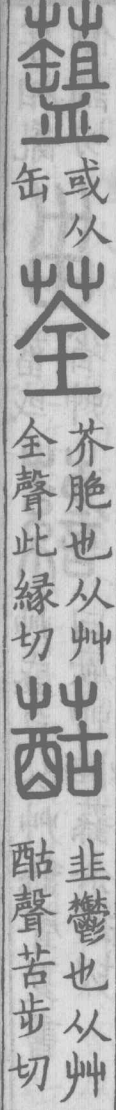 或从
缶
荃
芥脃也从艸
全聲此緣切
韭鬱也从艸
酤聲苦步切